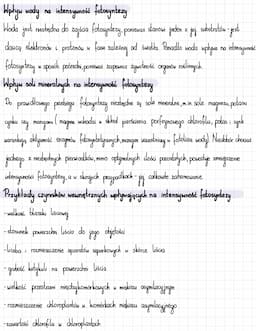 Wpływ wody na intensywność fotosyntezy
Woda jest niezbędna do zajścia fotosyntezy, ponieważ stanowi jeden z jej substratów - jest
dawcą elektronów i protonów w fazie zależnej od światła. Ponadto woda wpływa na intensywność
fotosyntezy w sposób pośredni, ponieważ zapewnia żywotność organów roślinnych.
Wpływ soli mineralnych na intensywność fotosyntezy
Do prawidłowego przebiegu fotosyntezy niezbędne są sole mineralne, m.in. sole magnezu, potasu
cynku czy manganu (magnez wchodzi w skład pierścienia porfirynowego chlorofilu, potas i cynk
warunkują aktywność enzymów fotosyntetycznych, mangan uczestniczy w fotolizie wody). Niedobór choćby
jednego z niezbędnych pierwiastków, mimo optymalnych ilości pozostałych, powoduje zmniejszenie
intensywności fotosyntezy, a w skrajnych przypadkach - jej całkowite zahamowanie.
Przykłady czynników wewnętrznych wpływających na intensywność fotosyntezy
- wielkość blaszki liściowej
- stosunek powierzchni liścia do jego objętości
- liczba i rozmieszczenie aparatów szparkowych w skórce liścia
- grubość kutykuli na powierzchni liścia
- wielkość przestworów międzykomórkowych w miękiszu asymilacyjnym
- rozmieszczenie chloroplastów w komórkach miękiszu asymilacyjnego
- zawartość chlorofilu w chloroplastach